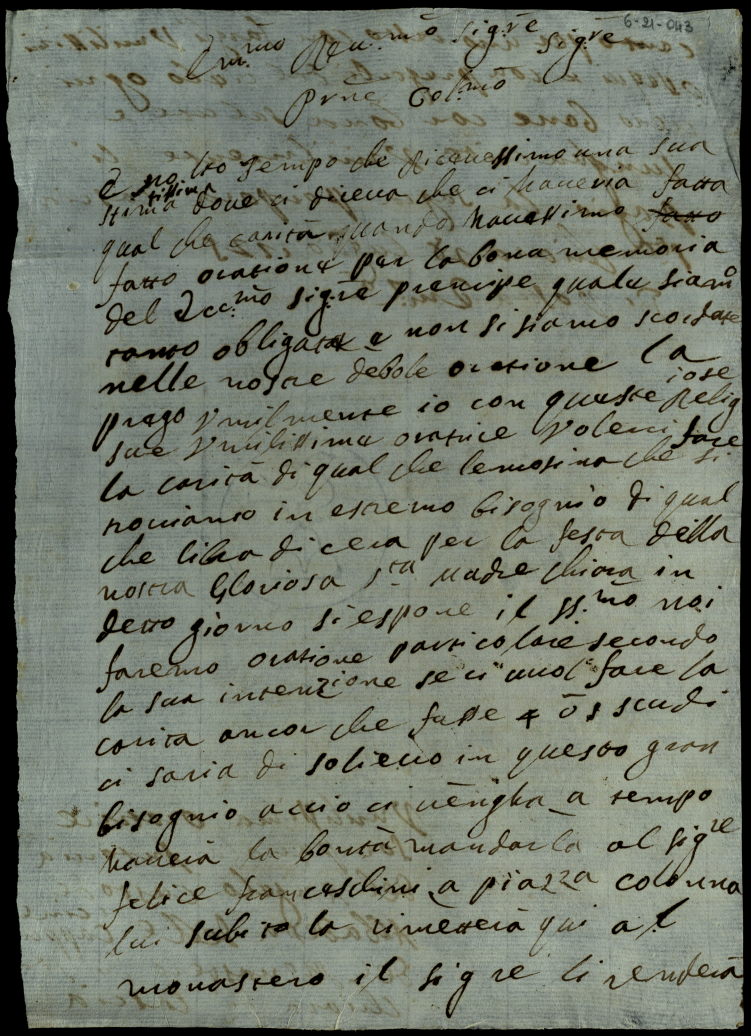 6-21-043
Em.mo Reu.mo Sig.re Sig.re
Prne Col.mo
È molto tempo che Riceuessimo una sua
stimatissima doue ci diceua che ci haueria fatta
qual che carità quando hauessimo fatto
fatto oratione per la bona memoria
del Ecc.mo sig.re prencipe quale siamo
tanto obligate e non si siamo scordate
nelle nostre debole oratione la
prego vmilmente io con queste Religiose
sue vmilissime oratrice volerci fare
la carità di qual che lemosina che si
trouiamo in estremo bisognio di qual
che libra di cera per la festa della
nostra Gloriosa S.ta Madre Chiara in
detto giorno si espone il SS.mo noi
faremo oratione particolare secondo
la sua intenzione se ci uol fare la
carita ancor che fusse 4 ò 5 scudi
ci saria di solieuo in questo gran
bisognio accio ci uengha a tempo
hauerà la bontà mandarla al sig.re
felice franceschini a piazza colonna
lui subito la rimetterà qui al
monastero il sig re li renderà